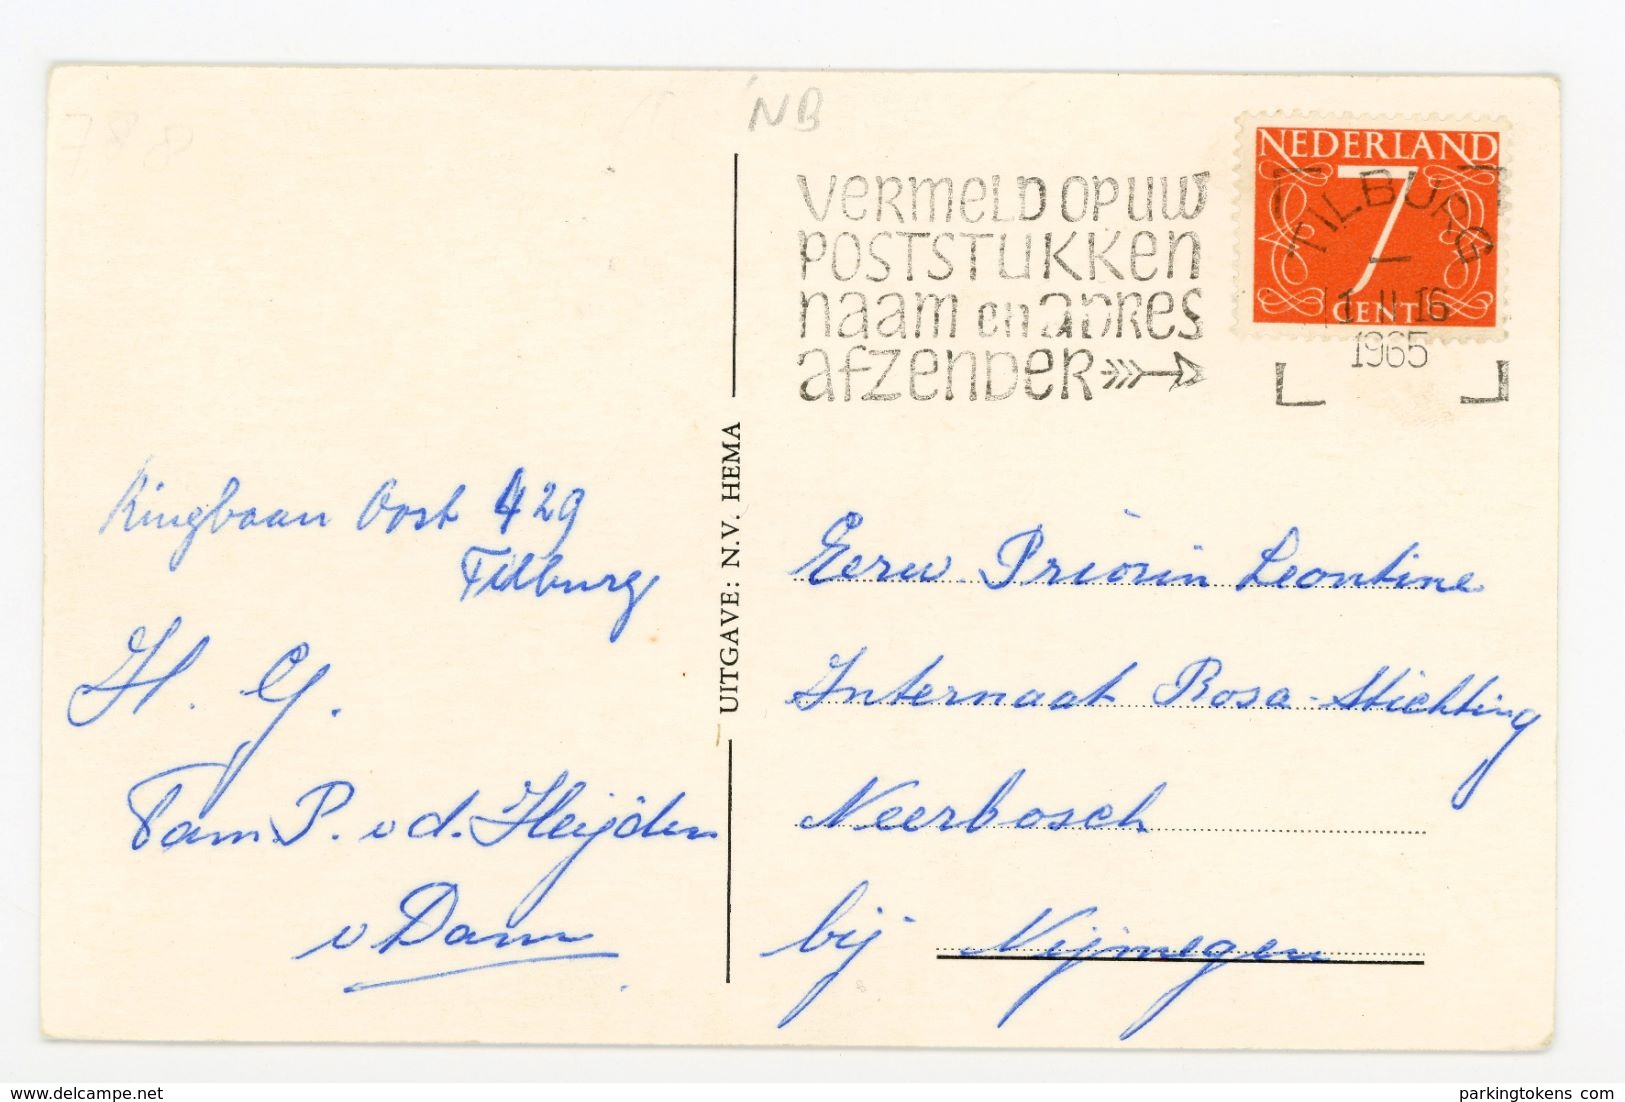 788
NB
VERMELD OP UW
POSTSTUKKEN
NAAM en ADRES
AFZENDER
NEDERLAND
7
CENT
TILBURG
1 II 16
1965
Ringbaan Oost 429
Tilburg
H. G.
Fam. P. v d. Heijden
v Dam
UITGAVE: N.V. HEMA
Eerw. Priorin Leontine
Internaat Rosa-Stichting
Neerbosch
bij Nijmegen
delcampe.net
parkingtokens.com